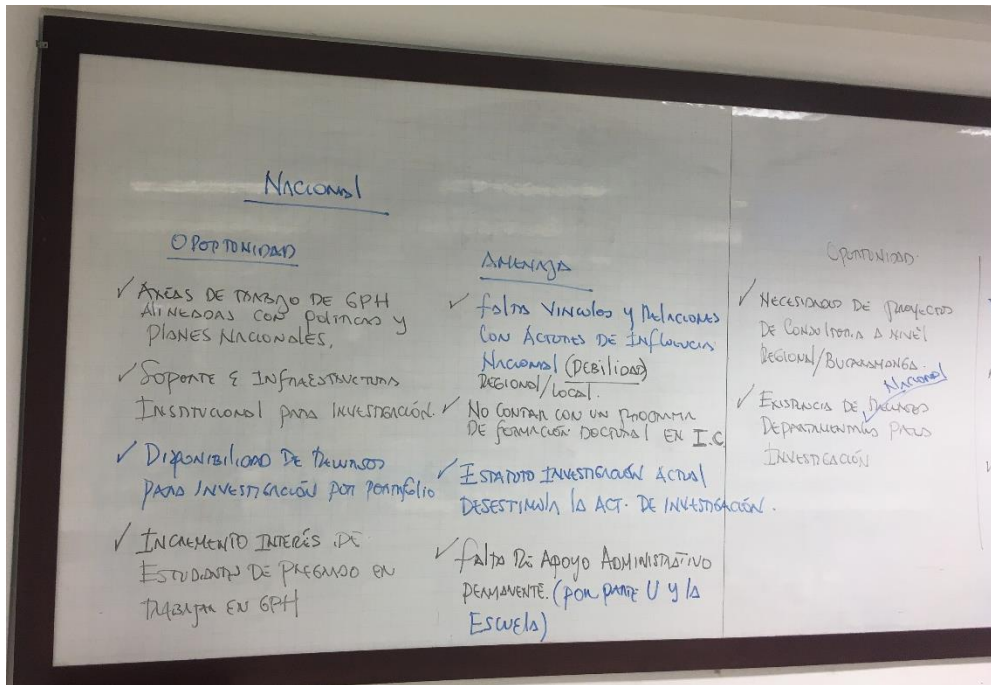 NACIONAL
OPORTUNIDAD
✓ ÁREAS DE TRABAJO DE GPH
ALINEADAS CON POLITICAS Y
PLANES NACIONALES.
✓ SOPORTE E INFRAESTRUCTURA
INSTITUCIONAL PARA INVESTIGACIÓN.
✓ DISPONIBILIDAD DE RECURSOS
PARA INVESTIGACIÓN POR PORTAFOLIO
✓ INCREMENTO INTERÉS DE
ESTUDIANTES DE PREGRADO EN
TRABAJAR EN GPH
AMENAZA
✓ FALTA VINCULOS Y RELACIONES
CON ACTORES DE INFLUENCIA
NACIONAL (DEBILIDAD)
REGIONAL/LOCAL.
✓ NO CONTAR CON UN PROGRAMA
DE FORMACIÓN DOCTORAL EN I.C
✓ ESTATUTO INVESTIGACIÓN ACTUAL
DESESTIMULA LA ACT. DE INVESTIGACIÓN.
✓ FALTA DE APOYO ADMINISTRATIVO
PERMANENTE. (POR PARTE U Y LA
ESCUELA)
OPORTUNIDAD
✓ NECESIDADES DE PROYECTOS
DE CONSULTORIA A NIVEL
REGIONAL/BUCARAMANGA.
NACIONAL
✓ EXISTENCIA DE RECURSOS
DEPARTAMENTALES PARA
INVESTIGACIÓN